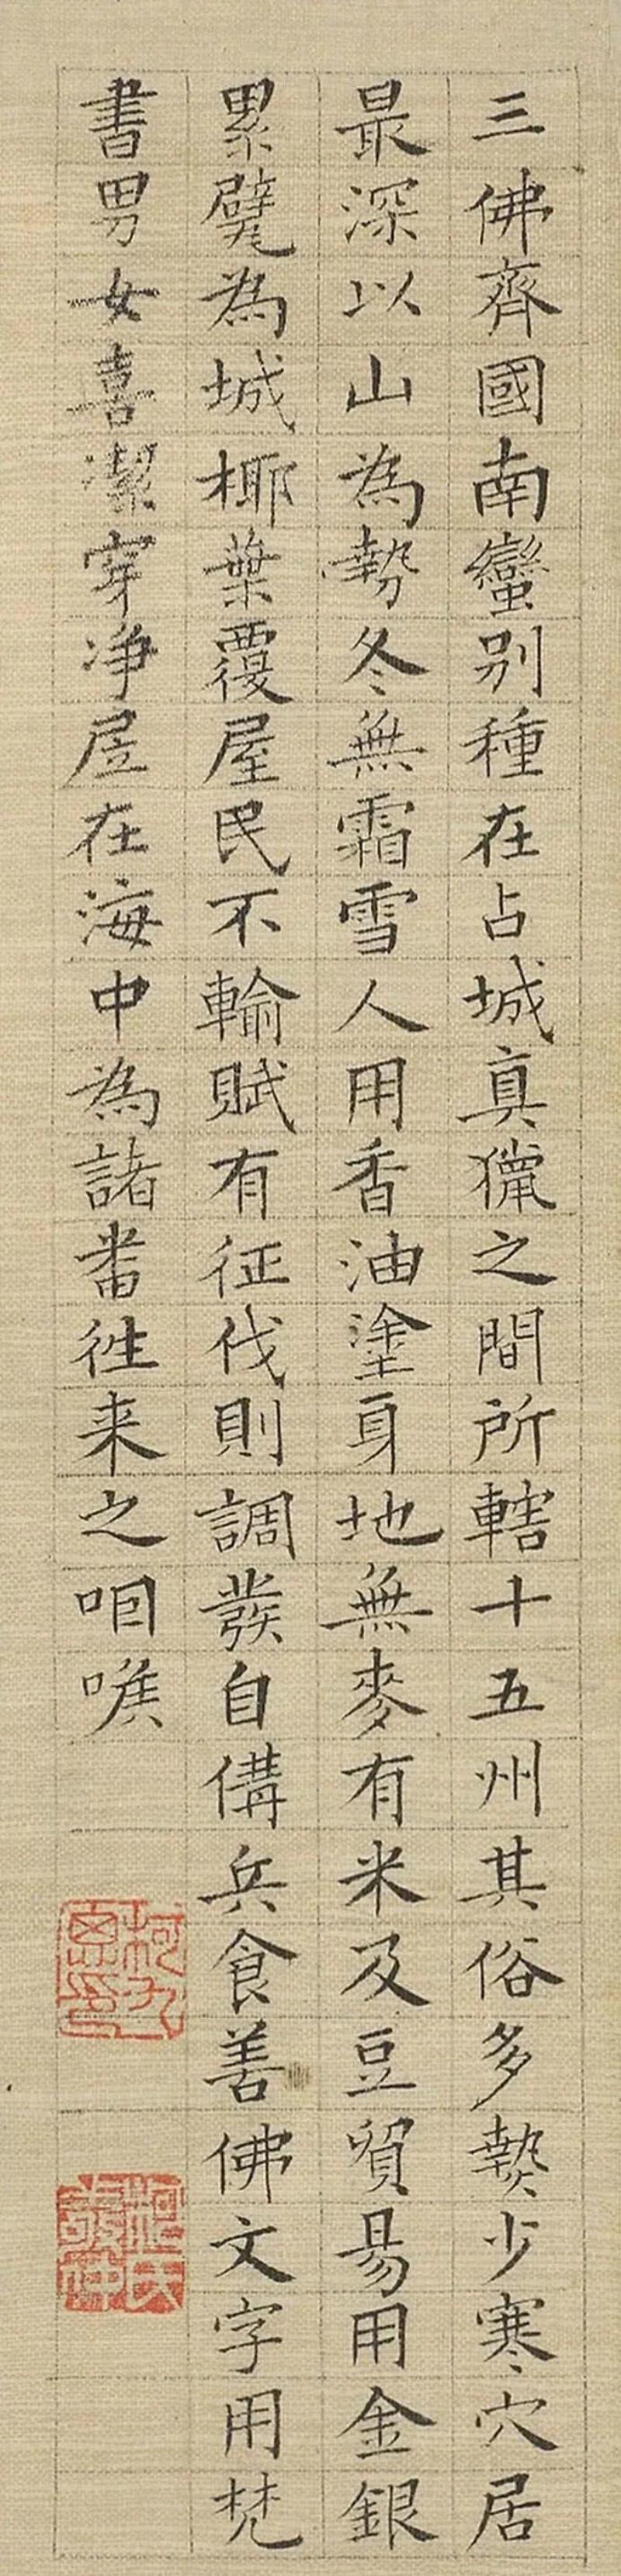 三佛齊國南蠻别種在占城真獵之間所轄十五州其俗多𤍠少寒穴居
最深以山為勢冬無霜雪人用香油塗身地無麥有米及豆貿易用金銀
累甓為城椰葉覆屋民不輸賦有征伐則調發自備兵食善佛文字用梵
書男女喜潔穿净屋在海中為諸番徃来之咽喉
柯九思印
柯氏敬仲